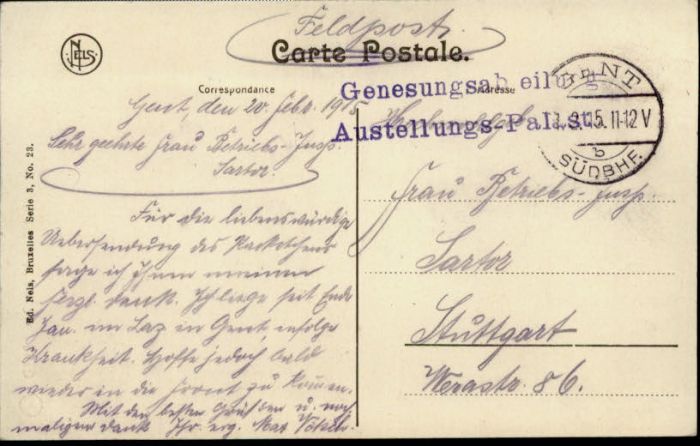 Feldpost.
Carte Postale.
NELS
Correspondance
Adresse
Genesungsab eilung
Austellungs-Palast.
GENT
15.11-12V
b
SÜDBHF.
Gent, den 20. Febr. 1915
Sehr geehrte Frau Betriebs-Insp.
Sartor.
Für die liebenswürdige
Uebersendung des
sage ich Ihnen meinen
herzl. Dank. Ich liege seit Ende
Jan. im Laz in Gent, infolge
Krankheit. Hoffe jedoch bald
wieder in die Front zu kommen.
Mit den besten Grüßen u. noch
maligen Dank Ihr erg. Max
Frau Betriebs-Insp.
Sartor
Stuttgart
Werastr. 86.
Ed. Nels, Bruxelles Serie 3, No. 23.